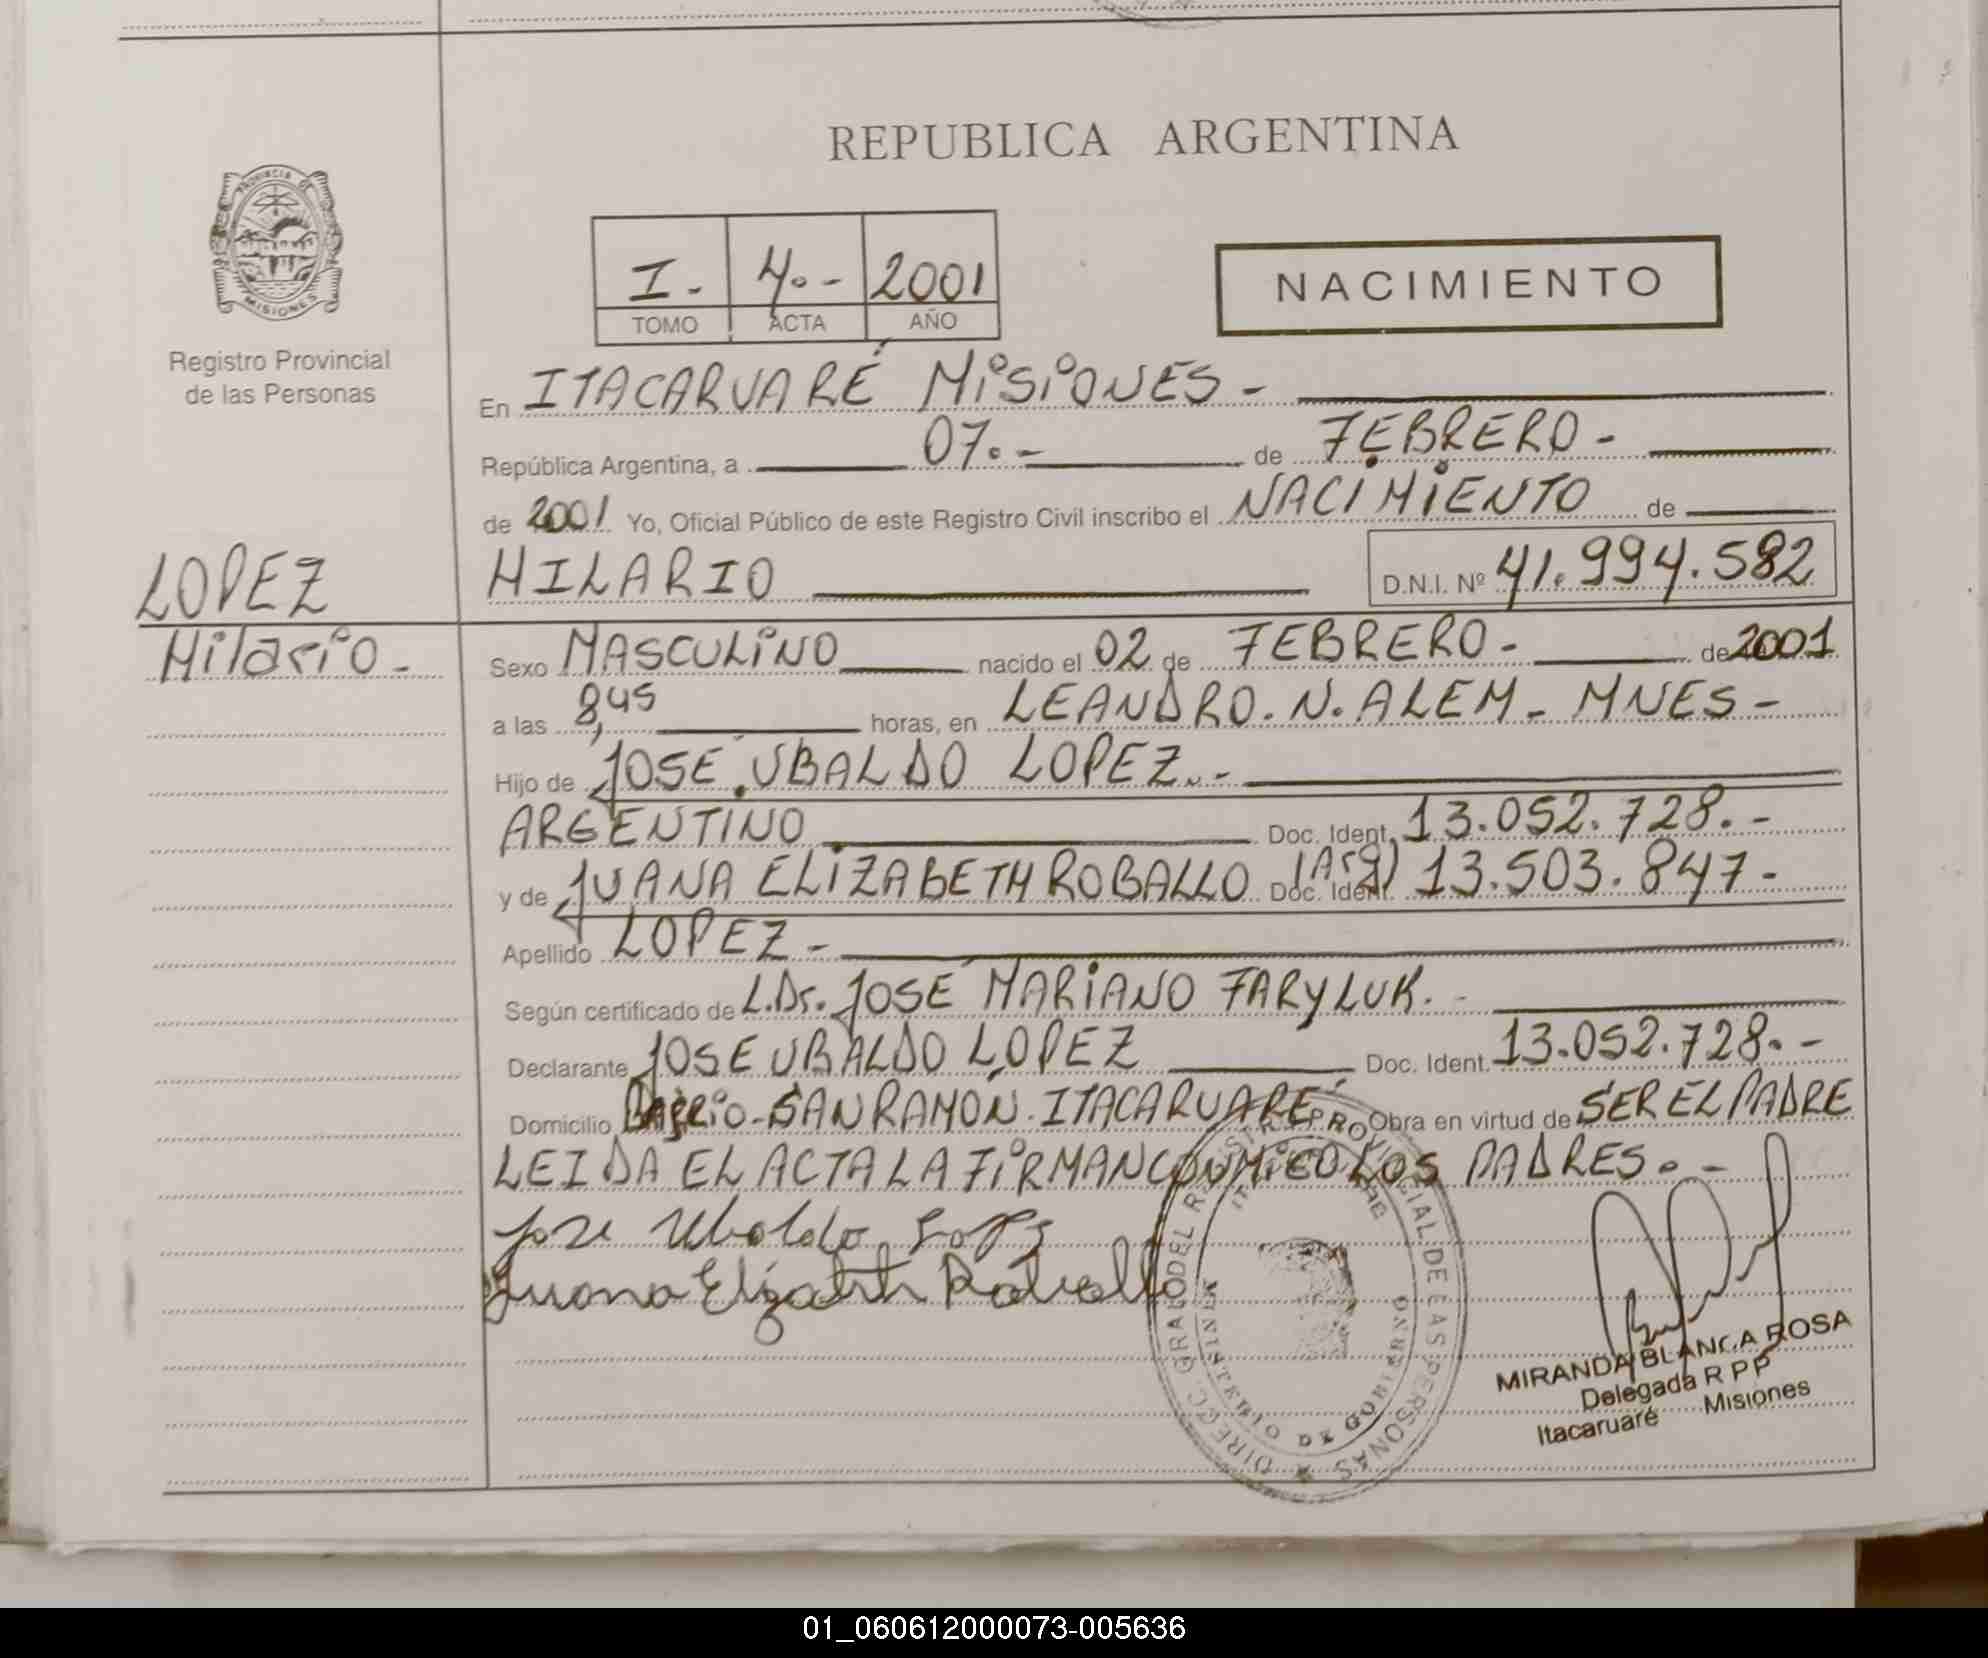 REPUBLICA ARGENTINA
PROVINCIA DE
MISIONES
Registro Provincial
de las Personas
I.- 4.- 2001
TOMO ACTA AÑO
NACIMIENTO
En ITACARUARÉ MISIONES -
República Argentina, a 07.- de FEBRERO -
de 2001 Yo, Oficial Público de este Registro Civil inscribo el NACIMIENTO de
HILARIO D.N.I. Nº 41.994.582
LOPEZ
Hilario -
Sexo MASCULINO nacido el 02 de FEBRERO - de 2001
a las 8,45 horas, en LEANDRO. N. ALEM - MNES -
Hijo de JOSÉ UBALDO LOPEZ.-
ARGENTINO Doc. Ident. 13.052.728.-
y de JUANA ELIZABETH ROBALLO Doc. Ident. (Arg) 13.503.847-
Apellido LOPEZ -
Según certificado de L.Dr. JOSÉ MARIANO FARYLUK.-
Declarante JOSE UBALDO LOPEZ Doc. Ident. 13.052.728.-
Domicilio BARRIO - SAN RAMÓN. ITACARUARÉ Obra en virtud de SER EL PADRE
LEIDA EL ACTA LA FIRMAN CONMIGO LOS PADRES.-
Jose Ubaldo Lopez
Juana Elizabeth Roballo
DIRECC. GRAL. DEL REGISTRO PROVINCIAL DE LAS PERSONAS
MINISTERIO DE GOBIERNO
MIRANDA BLANCA ROSA
Delegada R P P
Itacaruaré Misiones
01_060612000073-005636